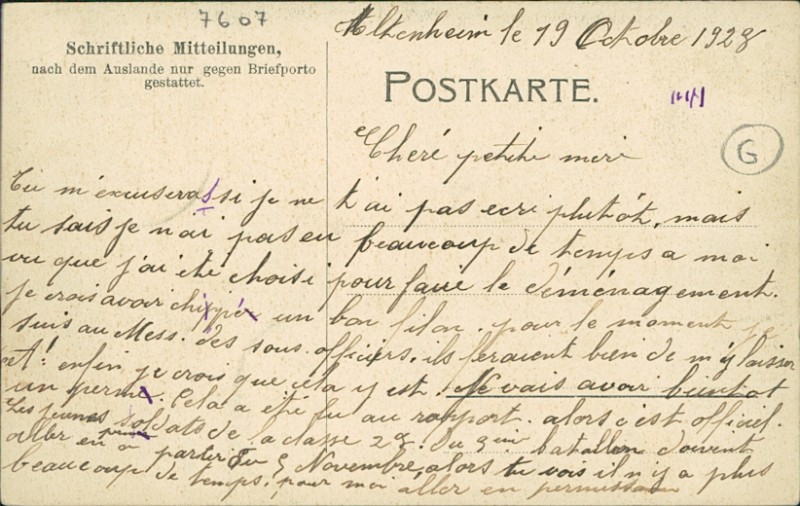 7607
Schriftliche Mitteilungen,
nach dem Auslande nur gegen Briefporto
gestattet.
Altenheim le 19 Octobre 1928
POSTKARTE.
G
Cheré petite meri
Tu m'excuseras si je ne t'ai pas ecri plutôt, mais
tu sais je n'ai pas eu beaucoup de temps a moi
vu que j'ai été choisi pour faire le déménagement.
je crois avoir chippé un bon filon. pour le moment je
suis au Mess. des sous. officiers, ils feraient bien de m'y laisser
enfin je crois que cela y est. Je vais avoir bientot
un perme. Cela a été lu au rapport. alors c'est officiel.
Les jeunes soldats de la classe 28. du 3eme batallon doivent
aller en perme a partir du 5 Novembre, alors tu vois il n'y a plus
beaucoup de temps, pour moi aller en permission